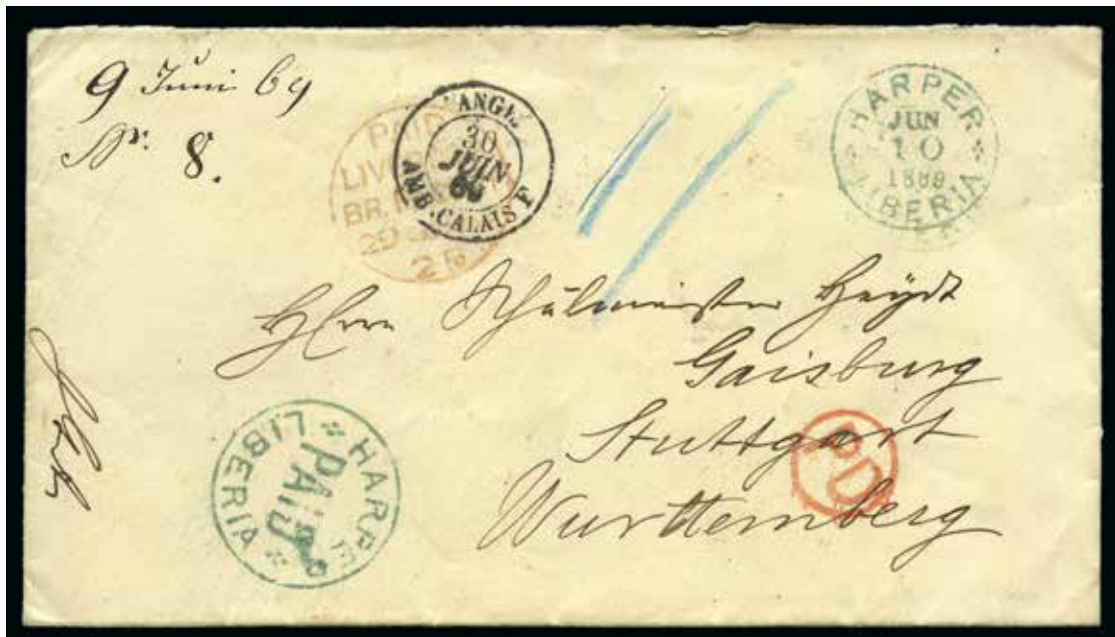 9 Juni 69
Nr. 8.
PAID
LIV
BR.
29
25
ANGL.
30
JUIN
69
AMB. CALAIS F
HARPER
JUN
10
1869
LIBERIA
Herrn Schulmeister Heydt
Gaisburg
Stuttgart
Württemberg
PD
HARPER
PAID
LIBERIA